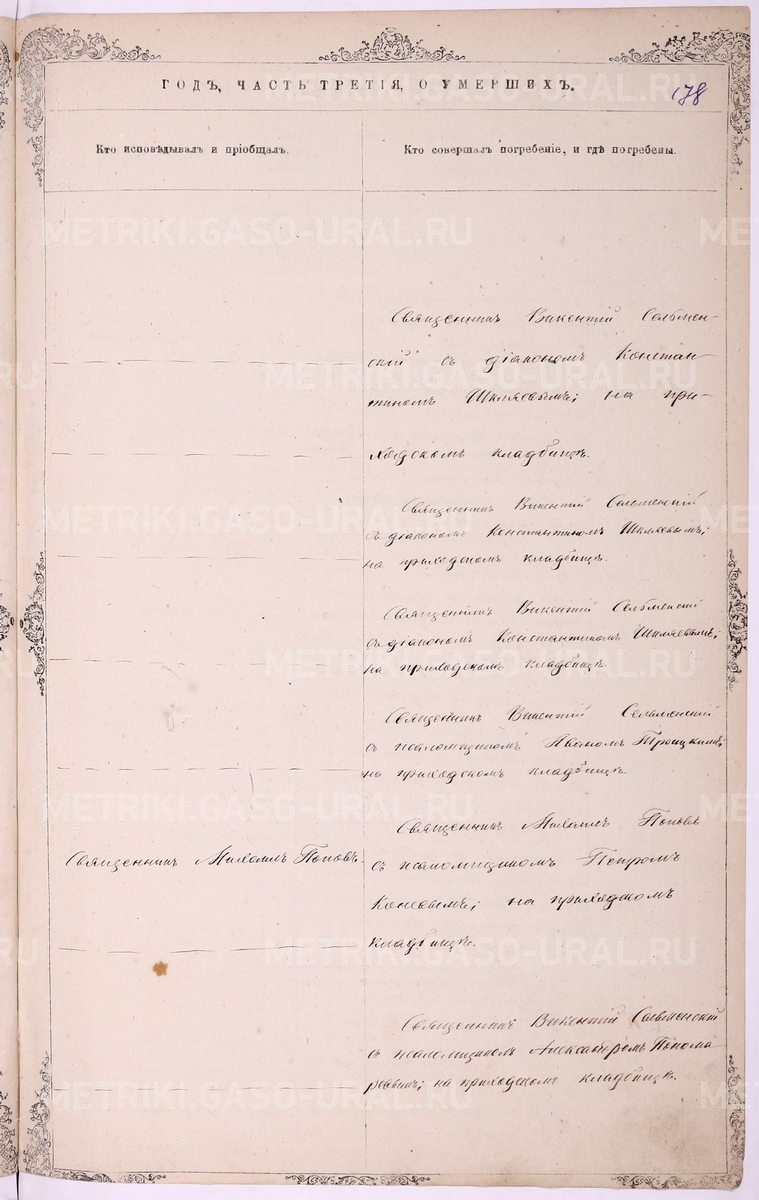 ГОДЪ, ЧАСТЬ ТРЕТІЯ, О УМЕРШИХЪ.
178
Кто исповѣдывалъ и пріобщалъ.
Кто совершалъ погребеніе, и гдѣ погребены.
Священникъ Викентій Сельмен-
скій съ діакономъ Констан-
тиномъ Шкляевымъ; на при-
ходскомъ кладбищѣ.
Священникъ Викентій Сельменскій
съ діакономъ Константиномъ Шкляевымъ;
на приходскомъ кладбищѣ.
Священникъ Викентій Сельменскій
съ діакономъ Константиномъ Шкляевымъ;
на приходскомъ кладбищѣ.
Священникъ Викентій Сельменскій
съ псаломщикомъ Иваномъ Троицкимъ;
на приходскомъ кладбищѣ.
Священникъ Михаилъ Поповъ.
Священникъ Михаилъ Поповъ
съ псаломщикомъ Петромъ
на приходскомъ
кладбищѣ.
Священникъ Викентій Сельменскій
съ псаломщикомъ Александромъ Понома-
ревымъ; на приходскомъ кладбищѣ.
METRIKI.GASO-URAL.RU